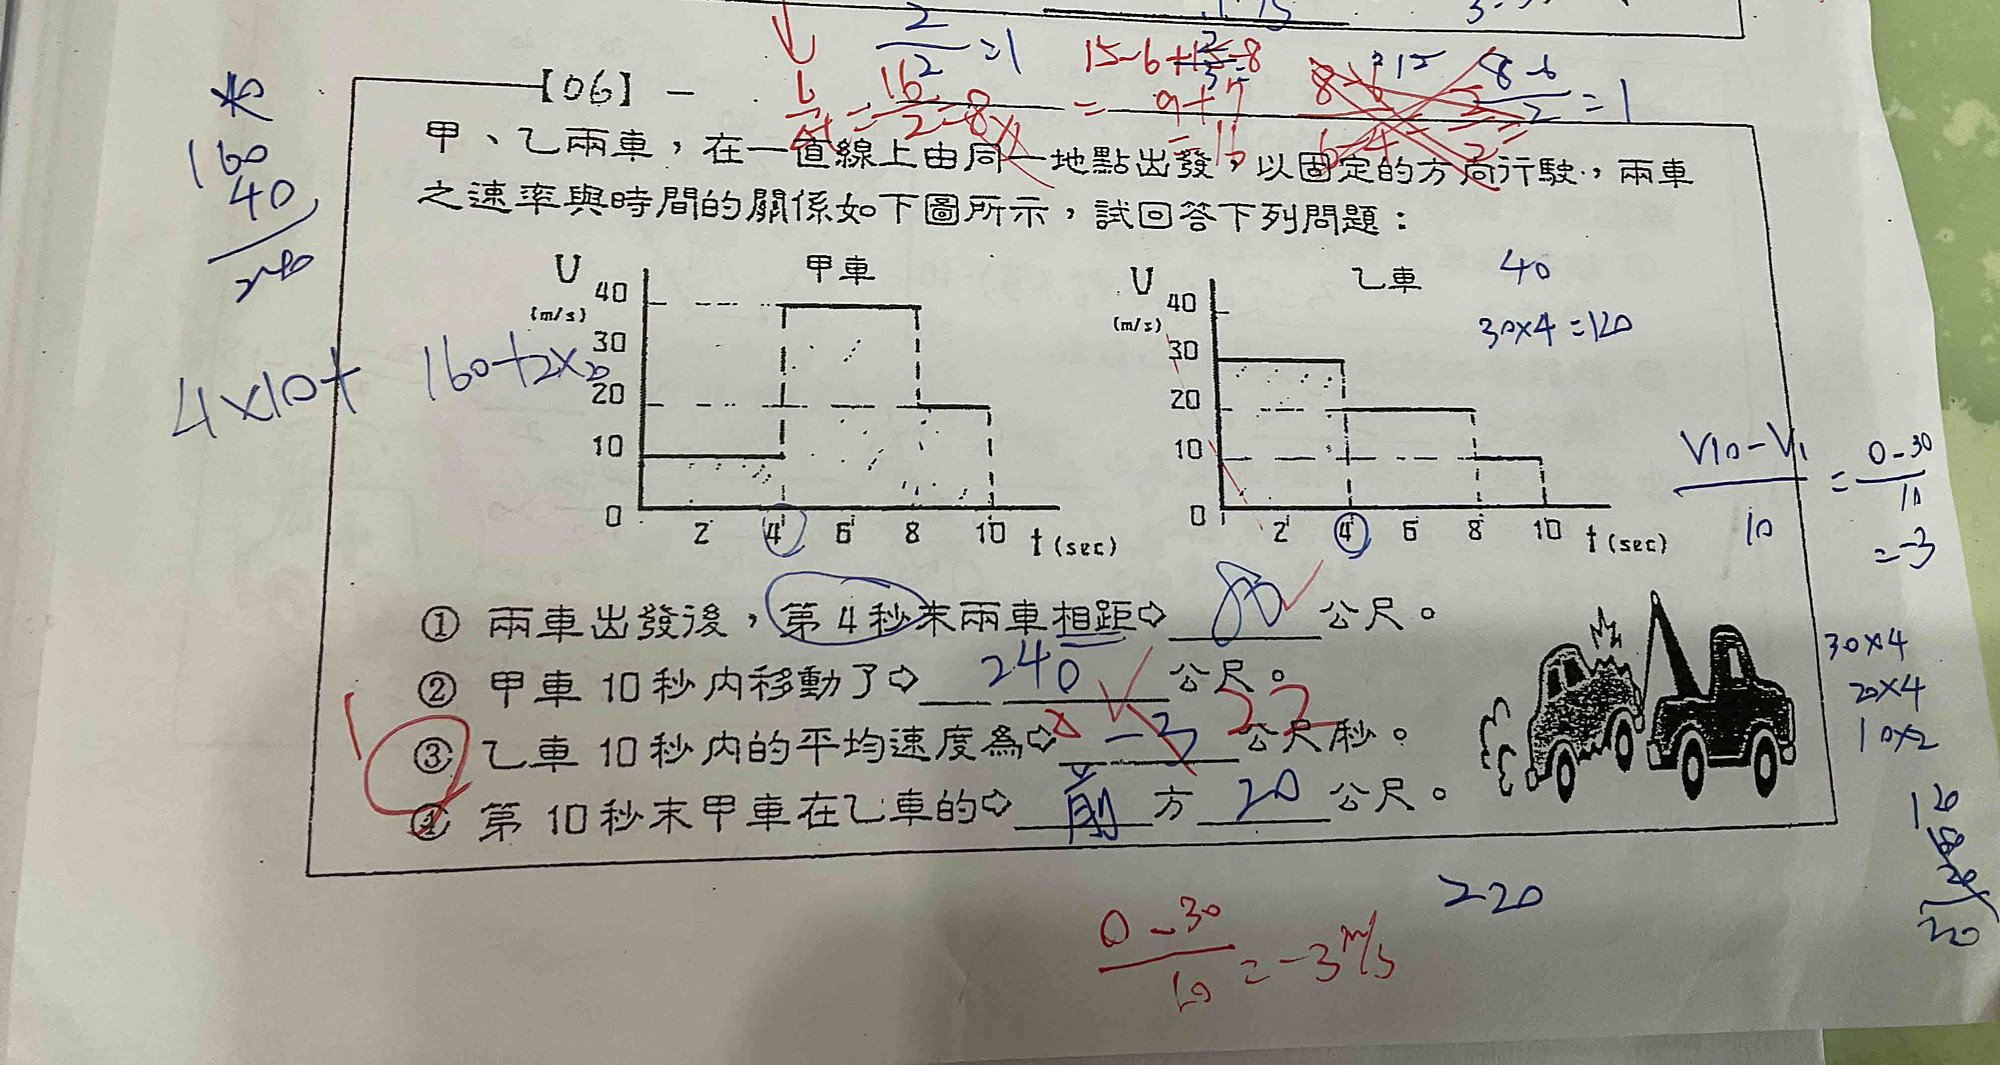 2/2=1
15-6+15-8
8-6/2=1
【06】
16/2=8
=9+7
=16
甲、乙兩車，在一直線上由同一地點出發，以固定的方向行駛，兩車
之速率與時間的關係如下圖所示，試回答下列問題：
160
40
240
4×10+ 160+2×20
U (m/s)
甲車
40
30
20
10
0
2 4 6 8 10 t (sec)
U (m/s)
乙車
40
30
20
10
0
2 4 6 8 10 t (sec)
40
30×4=120
V10-V1/10 = 0-30/10
=-3
① 兩車出發後，第4秒末兩車相距⇨ 80 公尺。
② 甲車10秒內移動了⇨ 240 公尺。
③ 乙車10秒內的平均速度為⇨ -3 22 公尺/秒。
④ 第10秒末甲車在乙車的⇨ 前 方 20 公尺。
30×4
20×4
10×2
120
20
220
0-30/10=-3m/s